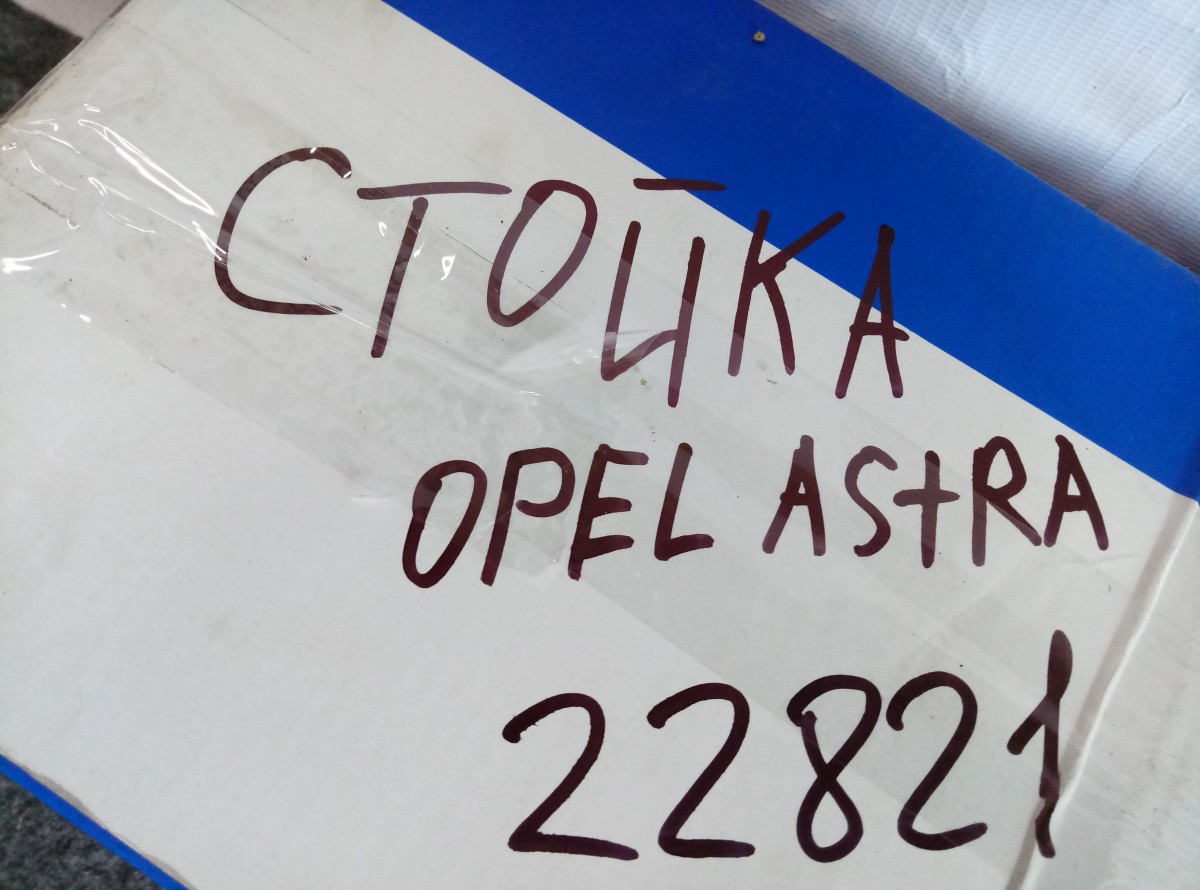 СТОЙКА
OPEL ASTRA
22821